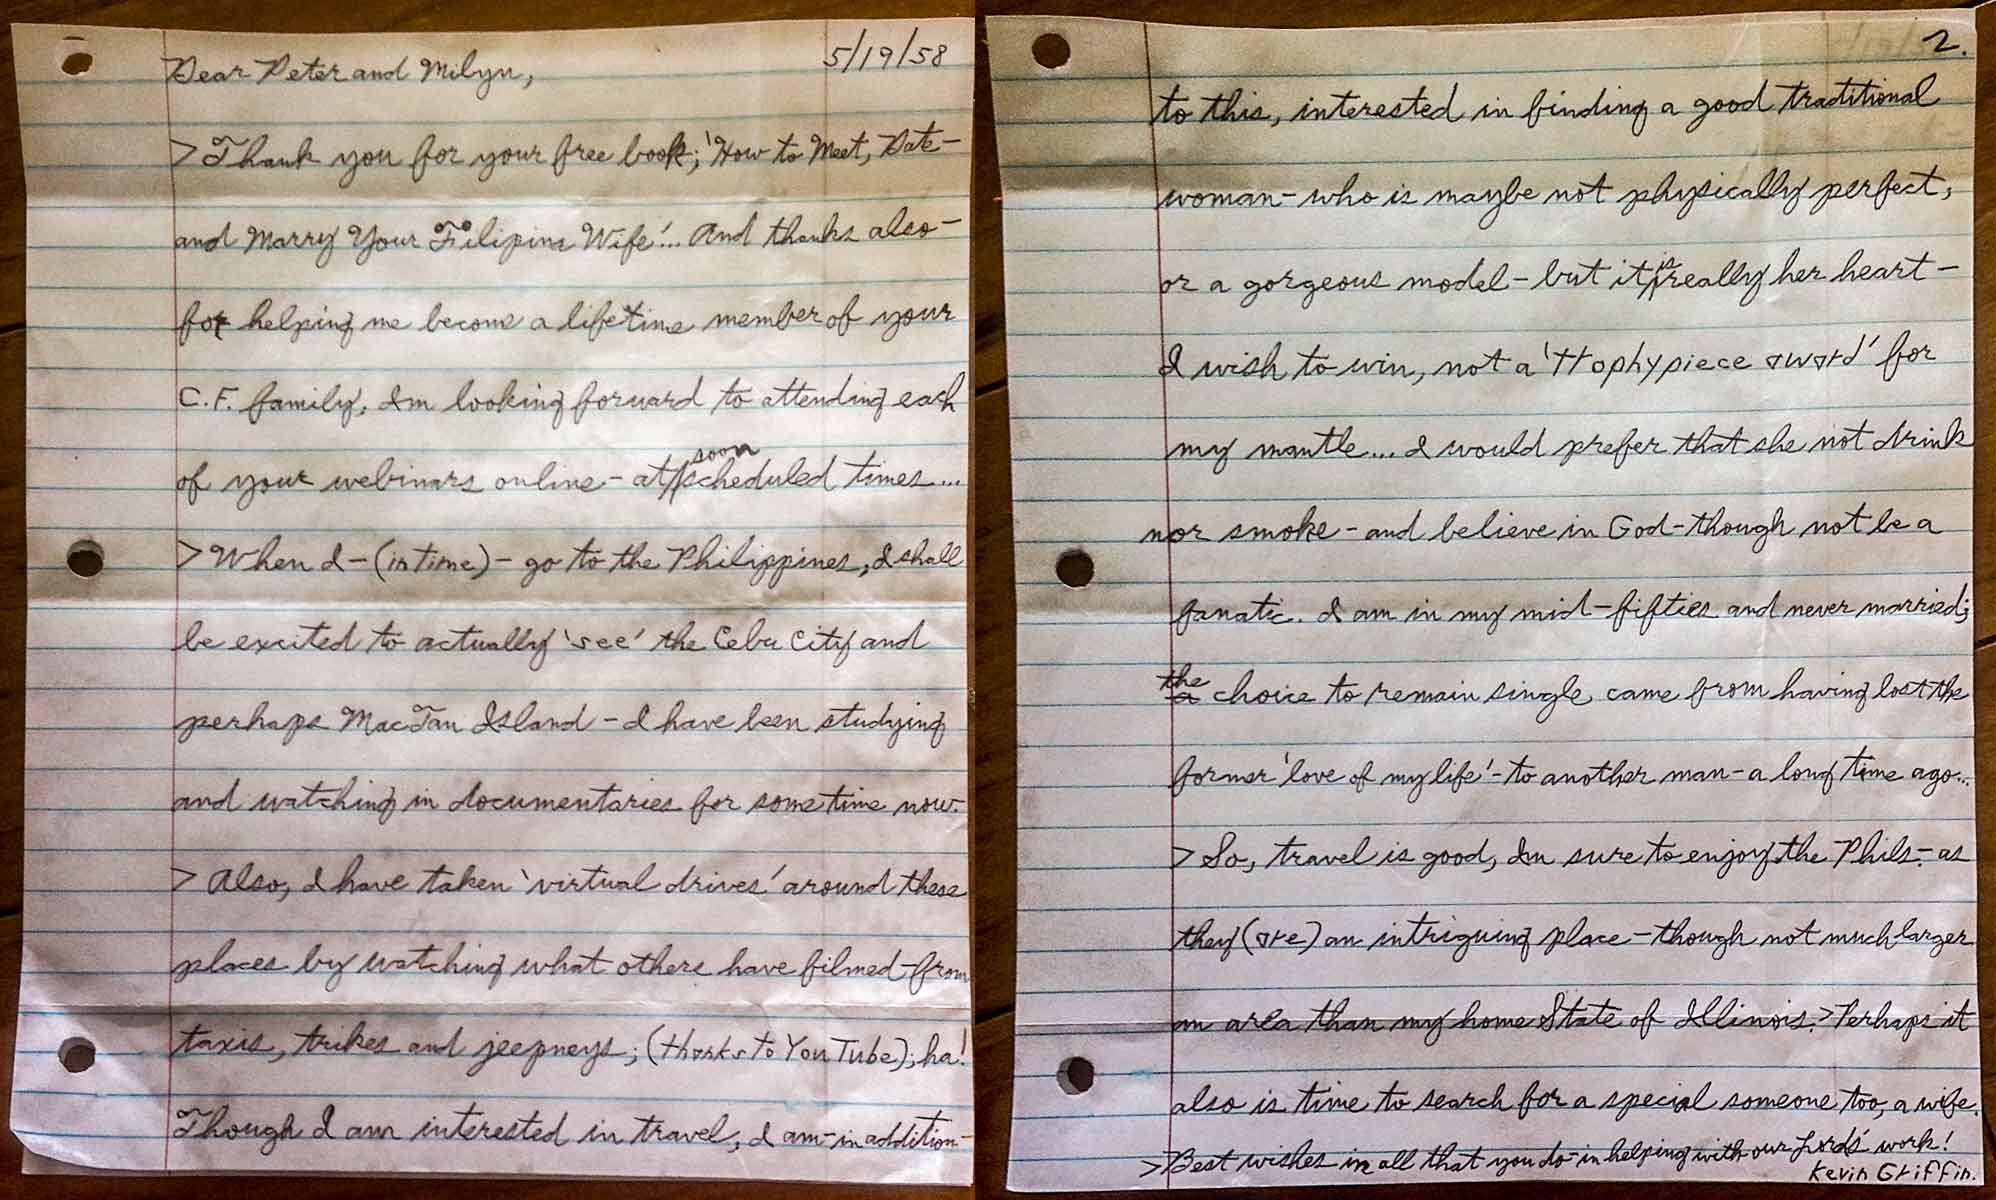 5/19/58
Dear Peter and Milyn,
> Thank you for your free book; 'How to Meet, Date-
and Marry Your Filipina Wife'... And thanks also-
for helping me become a lifetime member of your
C.F. family, Im looking forward to attending each
of your webinars online - at soon scheduled times...
> When I - (in time) - go to the Philippines, I shall
be excited to actually 'see' the Cebu City and
perhaps MacTan Island - I have been studying
and watching in documentaries for some time now.
> Also, I have taken 'virtual drives' around these
places by watching what others have filmed - from
taxis, trikes and jeepneys; (thanks to YouTube); ha!
Though I am interested in travel, I am - in addition -
2.
to this, interested in finding a good traditional
woman - who is maybe not physically perfect,
or a gorgeous model - but it is really her heart -
I wish to win, not a 'trophy piece award' for
my mantle... I would prefer that she not drink
nor smoke - and believe in God - though not be a
fanatic. I am in my mid-fifties and never married;
the choice to remain single, came from having lost the
former 'love of my life' - to another man - a long time ago...
> So, travel is good, Im sure to enjoy the Phils. - as
they (are) an intriguing place - though not much larger
an area than my home State of Illinois. > Perhaps it
also is time to search for a special someone too, a wife.
> Best wishes in all that you do - in helping with our Lords' work!
Kevin Griffin.